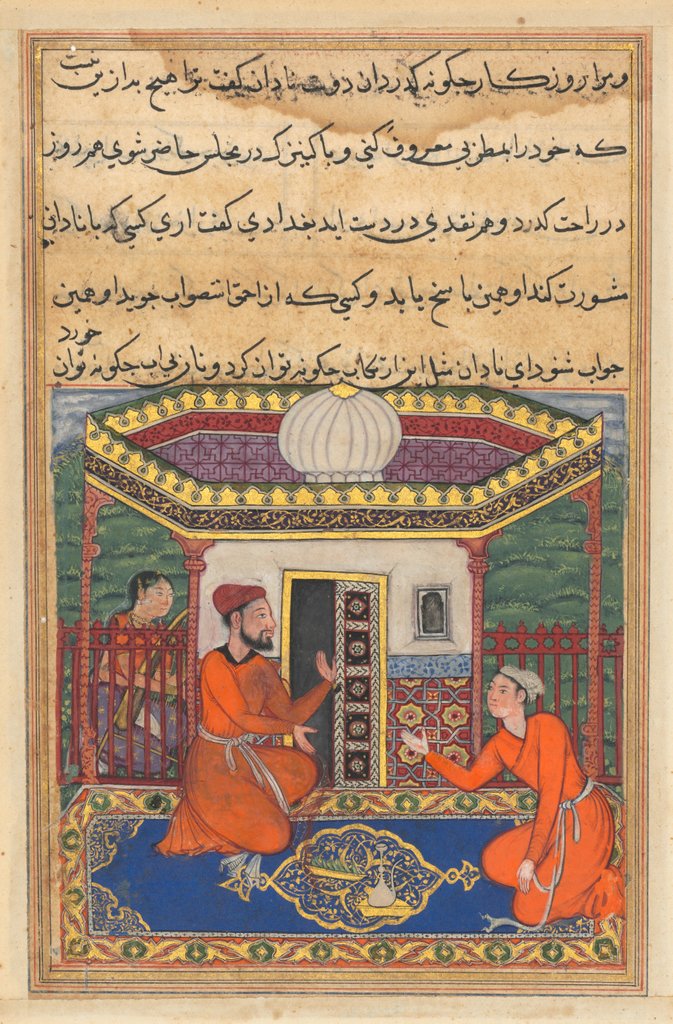 و مرا روزکار چکونه کدرد ان دوست نادان کفت ترا هیچ به ازین نیست
که خود را بمطربی معروف کنی و با کنیزک در مجلس حاضر شوی هم روز
در راحت کدرد و هم نقدی در دست اید بغدادی کفت اری کسی که با نادان
مشورت کند او همین پاسخ یابد و کسی که از احمق استصواب جوید او همین
جواب شنود ای نادان مثل این ارتکاب چکونه توان کرد و نان بی اب چکونه توان خورد